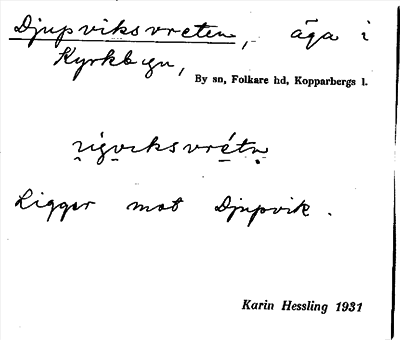 Djupviksvreten, äga i
Kyrkbyn,
By sn, Folkare hd, Kopparbergs l.
Ligger mot Djupvik.
Karin Hessling 1931